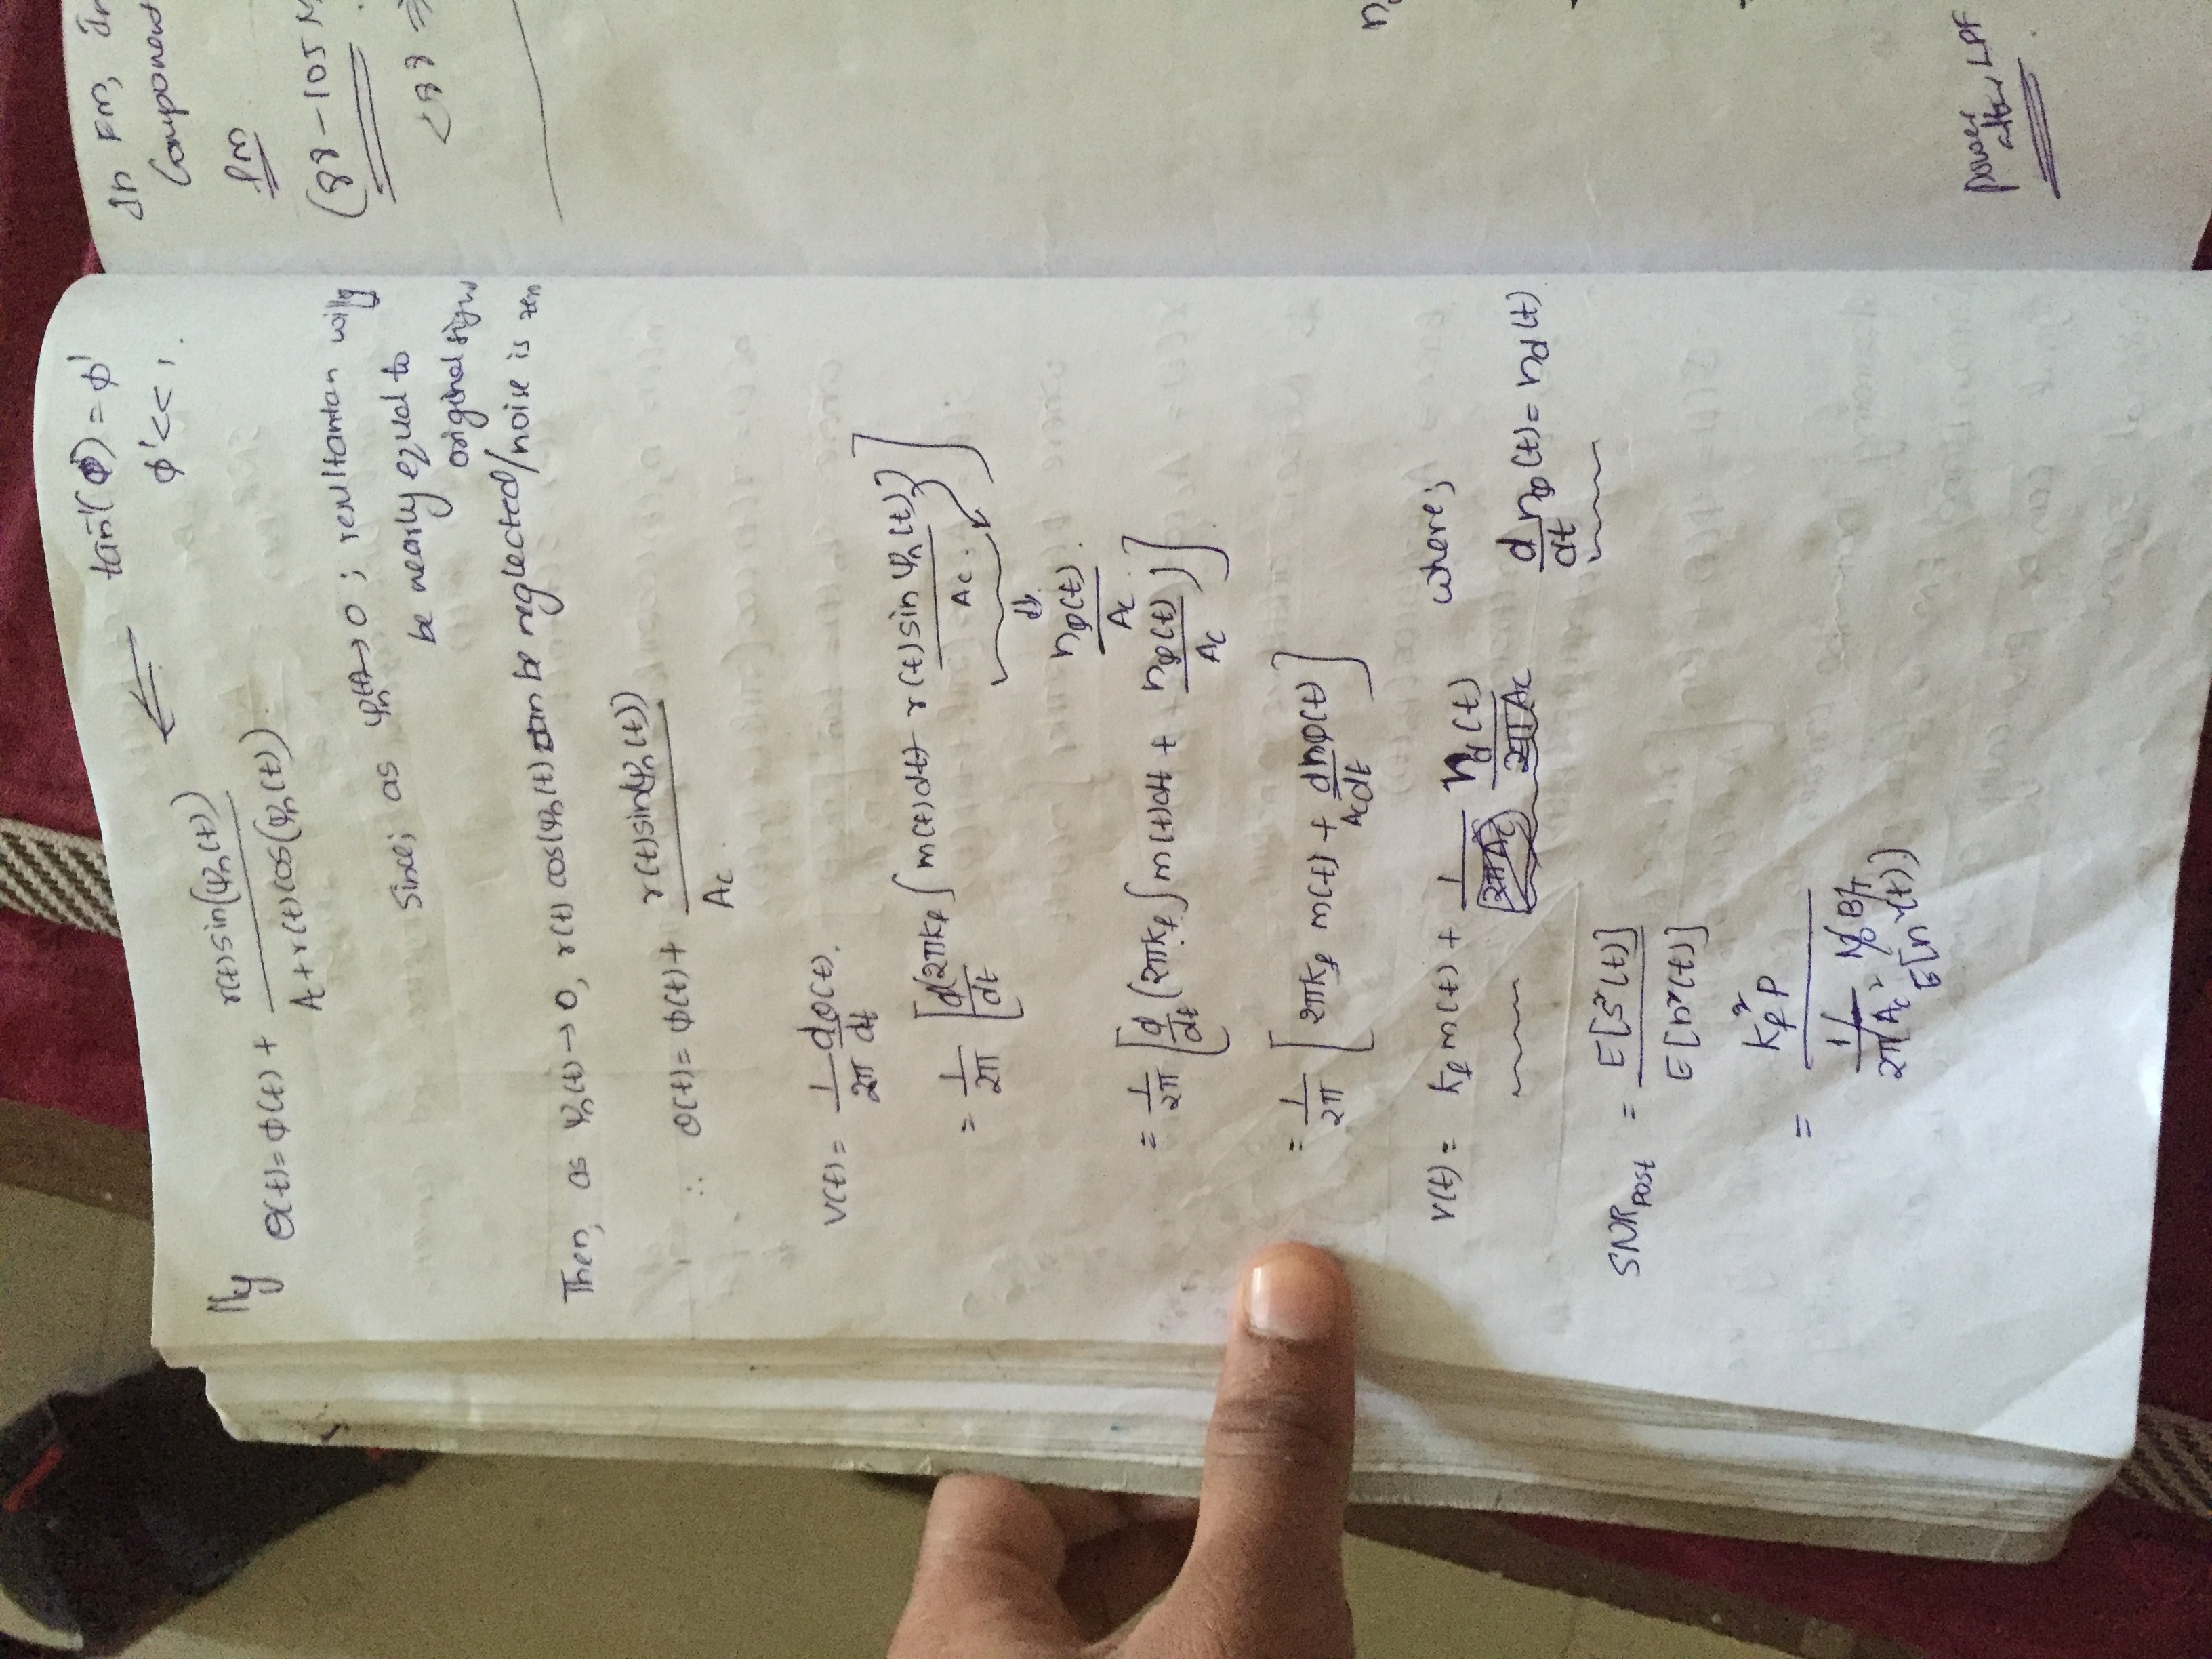 tan⁻¹(ϕ') = ϕ'
ϕ' << 1.
lly θ(t) = ϕ(t) + r(t) sin(ψn(t)) / Ac + r(t) cos(ψn(t)).
Since; as ψn(t) → 0 ; resultantan will
be nearly equal to
original sign
Then, as ψn(t) → 0, r(t) cos(ψn(t) can be neglected/noise is zero
∴ θ(t) = ϕ(t) + r(t) sin(ψn(t)) / Ac.
V(t) = 1/2π dθ(t)/dt.
= 1/2π [d/dt (2πkf ∫ m(t) dt + r(t) sin ψn(t) / Ac.)]
⇓
nϕ(t) / Ac.
= 1/2π [d/dt (2πkf ∫ m(t) dt + nϕ(t) / Ac)].
= 1/2π [2πkf m(t) + dnϕ(t) / Ac dt]
V(t) = kf m(t) + 1/2πAc nd(t) / 2πAc where;
d/dt nϕ(t) = nd(t)
SNR post = E[s²(t)] / E[n²(t)]
= kf² P / 1/2π Ac² N0 BT
E[n²(t)]
In FM,
Component
PM
(88 – 105 M
<88 ⇒
Power
after LPF